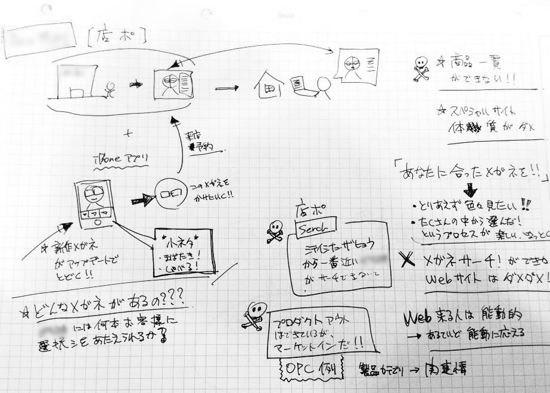 [店ポ]
☆商品一覧
ができない!!
☆スペシャルサイト
体質がダメ
+
iPoneアプリ
来店
予約
このメガネを
かけたい!!
☆新作メガネ
がアップデートで
とどく!!
*小ネタ*
「あなたに合ったメガネを!!」
・とりあえず色々見たい!!
・たくさんの中から選んだ!
というプロセスが楽しい
店ポ
Serch
から一番近い
がサーチできない
メガネサーチ!ができない
Webサイトはダメダメ!
☆どんなメガネがあるの???
には何本お客様に
選択しをあたえられるか?
プロダクトアウト
はできているが、
マーケットインだ!!
OPC 例
Web 来る人は能動的
→あるていど能動に応える
製品カテゴリ→